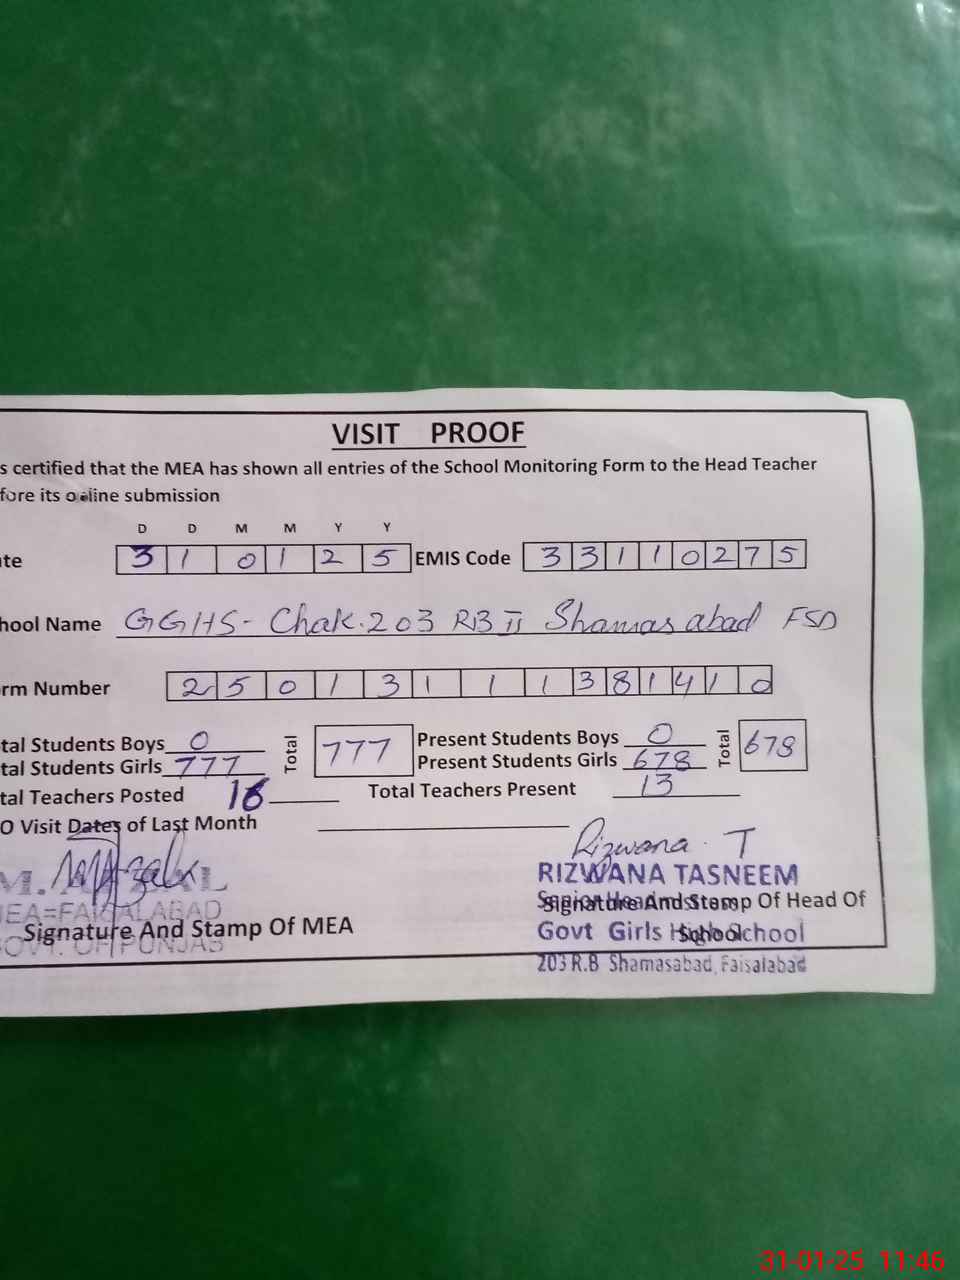 VISIT PROOF
s certified that the MEA has shown all entries of the School Monitoring Form to the Head Teacher
fore its online submission
D D M M Y Y
te 3 1 0 1 2 5 EMIS Code 3 3 1 1 0 2 7 5
hool Name GGHS- Chak.203 RB II Shamasabad FSD
rm Number 2 5 0 1 3 1 1 1 3 8 1 4 1 0
tal Students Boys 0 Total 777 Present Students Boys 0 Total 678
tal Students Girls 777 Present Students Girls 678
tal Teachers Posted 16 Total Teachers Present 13
O Visit Dates of Last Month
Rizwana T
RIZWANA TASNEEM
Signature And Stamp Of Head Of
MEA=FAISALABAD
Signature And Stamp Of MEA
GOVT. OF PUNJAB
Govt Girls High School
School
203 R.B Shamasabad, Faisalabad
31-01-25 11:46